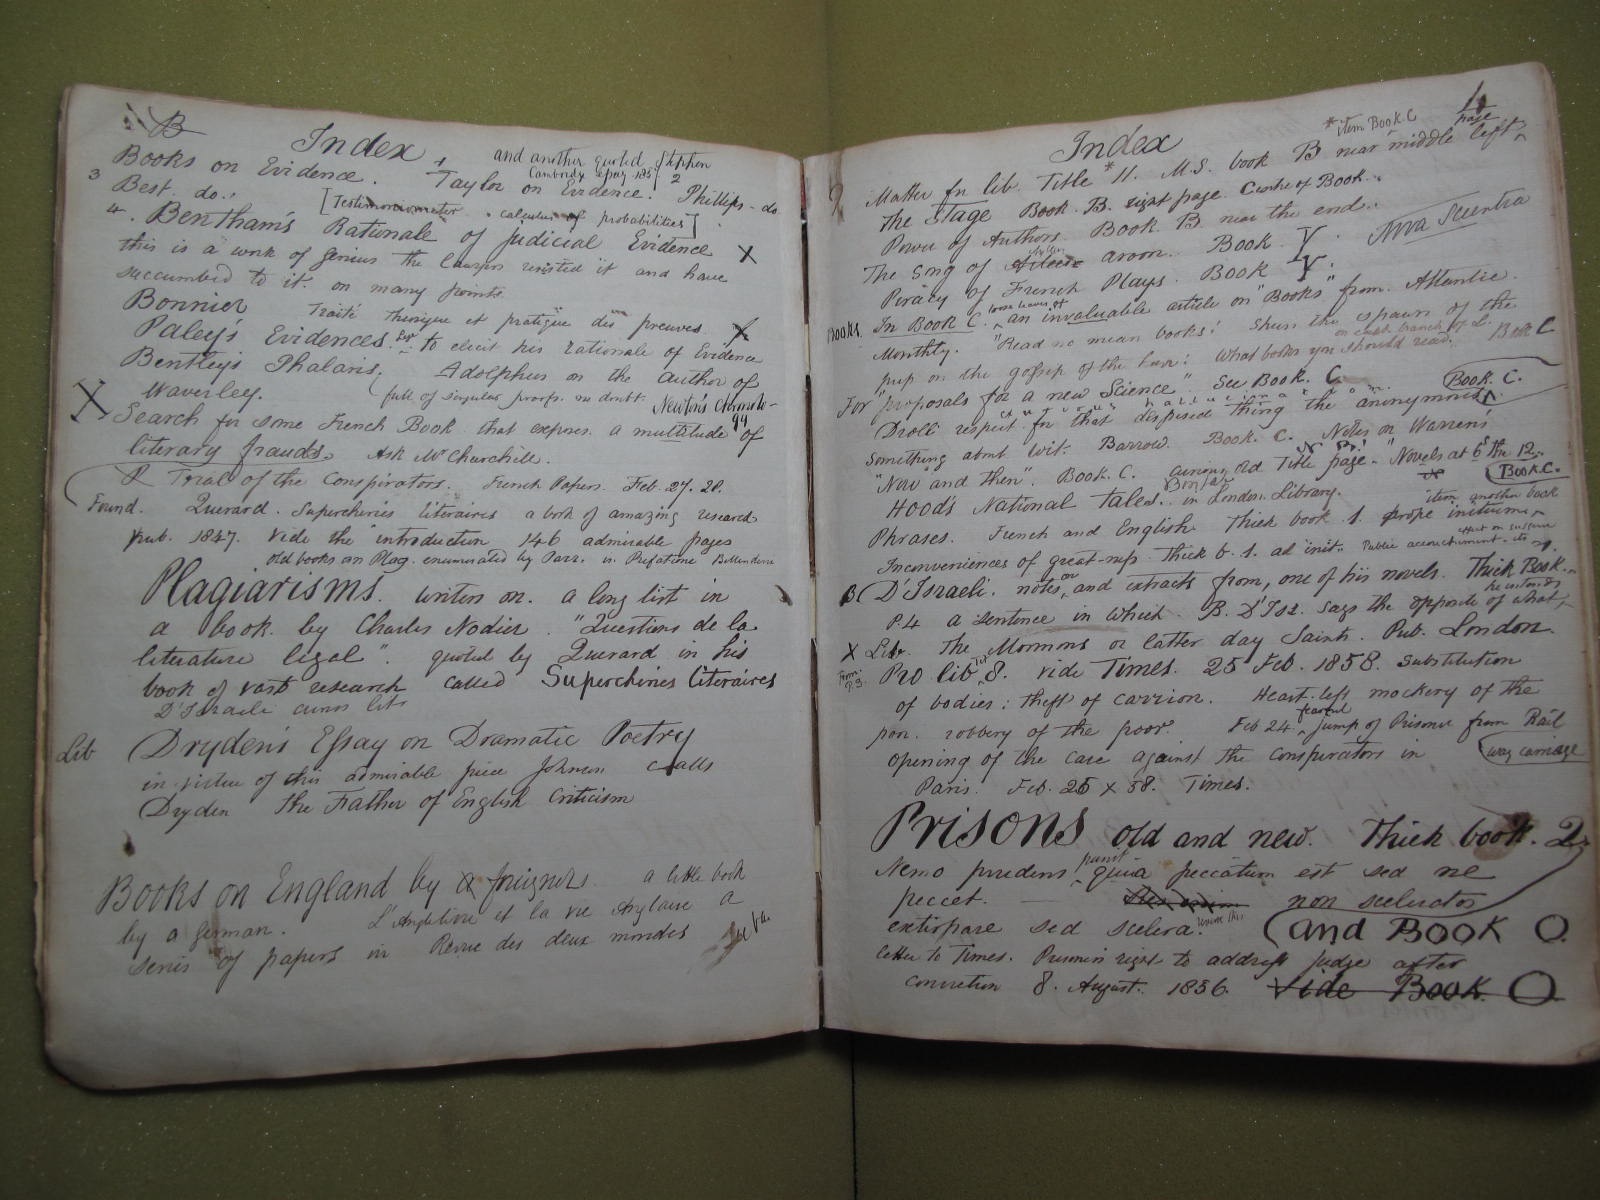 B
Index
and another quoted Stephen
Books on Evidence. 1 Taylor on Evidence. 2 Phillips - do
3 Best. do.
[Testimoniometer. calculus of probabilities]
4. Bentham's Rationale of Judicial Evidence X
this is a work of genius the lawyers resisted it and have
succumbed to it on many points
Bonnier Traité theorique et pratique des preuves
Paley's Evidences to elicit his rationale of Evidence
Bentley's Phalaris. Adolphus on the author of
Waverley. full of singular proofs. no doubt. Newton's
X Search for some French Book that exposes a multitude of
literary frauds. Ask Mr Churchill.
Trial of the Conspirators. French Papers. Feb. 27. 28.
Found. Querard. Supercheries literaires a book of amazing research
pub. 1847. vide the introduction 146 admirable pages
old books on Plag. enumerated by Parr. in Prefatione Bellendeni
Plagiarisms. writers on. a long list in
a book by Charles Nodier. "Questions de la
literature legal". quoted by Querard in his
book of vast research called Supercheries Literaires
D'Israeli curios lit
Lib Dryden's Essay on Dramatic Poetry
in virtue of this admirable piece Johnson calls
Dryden the Father of English Criticism
Books on England by foreigners. a little book
by a German. L'Angleterre et la vie Anglaise a
series of papers in Revue des deux mondes
1
page
* item Book C
Index
Matter for lib. Title * 11. M.S. book B near middle left
The Stage Book. B. right page. Centre of Book.
Power of Authors. Book B near the end.
The Song of aroon. Book Y
Piracy of French Plays. Book Y.
Books. In Book C. an invaluable article on "Books" from Atlantic
Monthly. "Read no mean books! Shun the spawn of the
on each branch of L.
press on the gossip of the hour! What books you should read. Book C
For "proposals for a new Science". See Book. C.
Book. C.
Droll respect for that despised thing the anonymous
Something about wit. Barrow. Book. C. Notes on Warren's
"Now and then". Book. C. among old Title page. "Novels at 6s the 12.
Book C.
Hood's National tales. in London Library.
item another book
Phrases. French and English Thick book 1. prope initium
Inconveniences of great-ness Thick b. 1. ad init. Public accouchment.
D'Israeli. notes on and extracts from, one of his novels. Thick Book.
he intends
P.4 a sentence in which B. D'Isr. says the opposite of what
X Lib. The Mormons or latter day Saints. Pub. London.
Pro lib. 8. vide Times. 25 Feb. 1858. Substitution
of bodies: theft of carrion. Heart-left mockery of the
poor. robbery of the poor. Feb 24 fearful jump of Prisoner from Rail
way carriage
opening of the case against the conspirators in
Paris. Feb. 26 x 58. Times.
Prisons old and new. Thick book. 2.
Nemo prudens punit quia peccatum est sed ne
peccet. non scelestos
extirpare sed scelera. (and Book O.
Letter to Times. Prisoners right to address judge after
conviction 8. August. 1856. Vide Book O